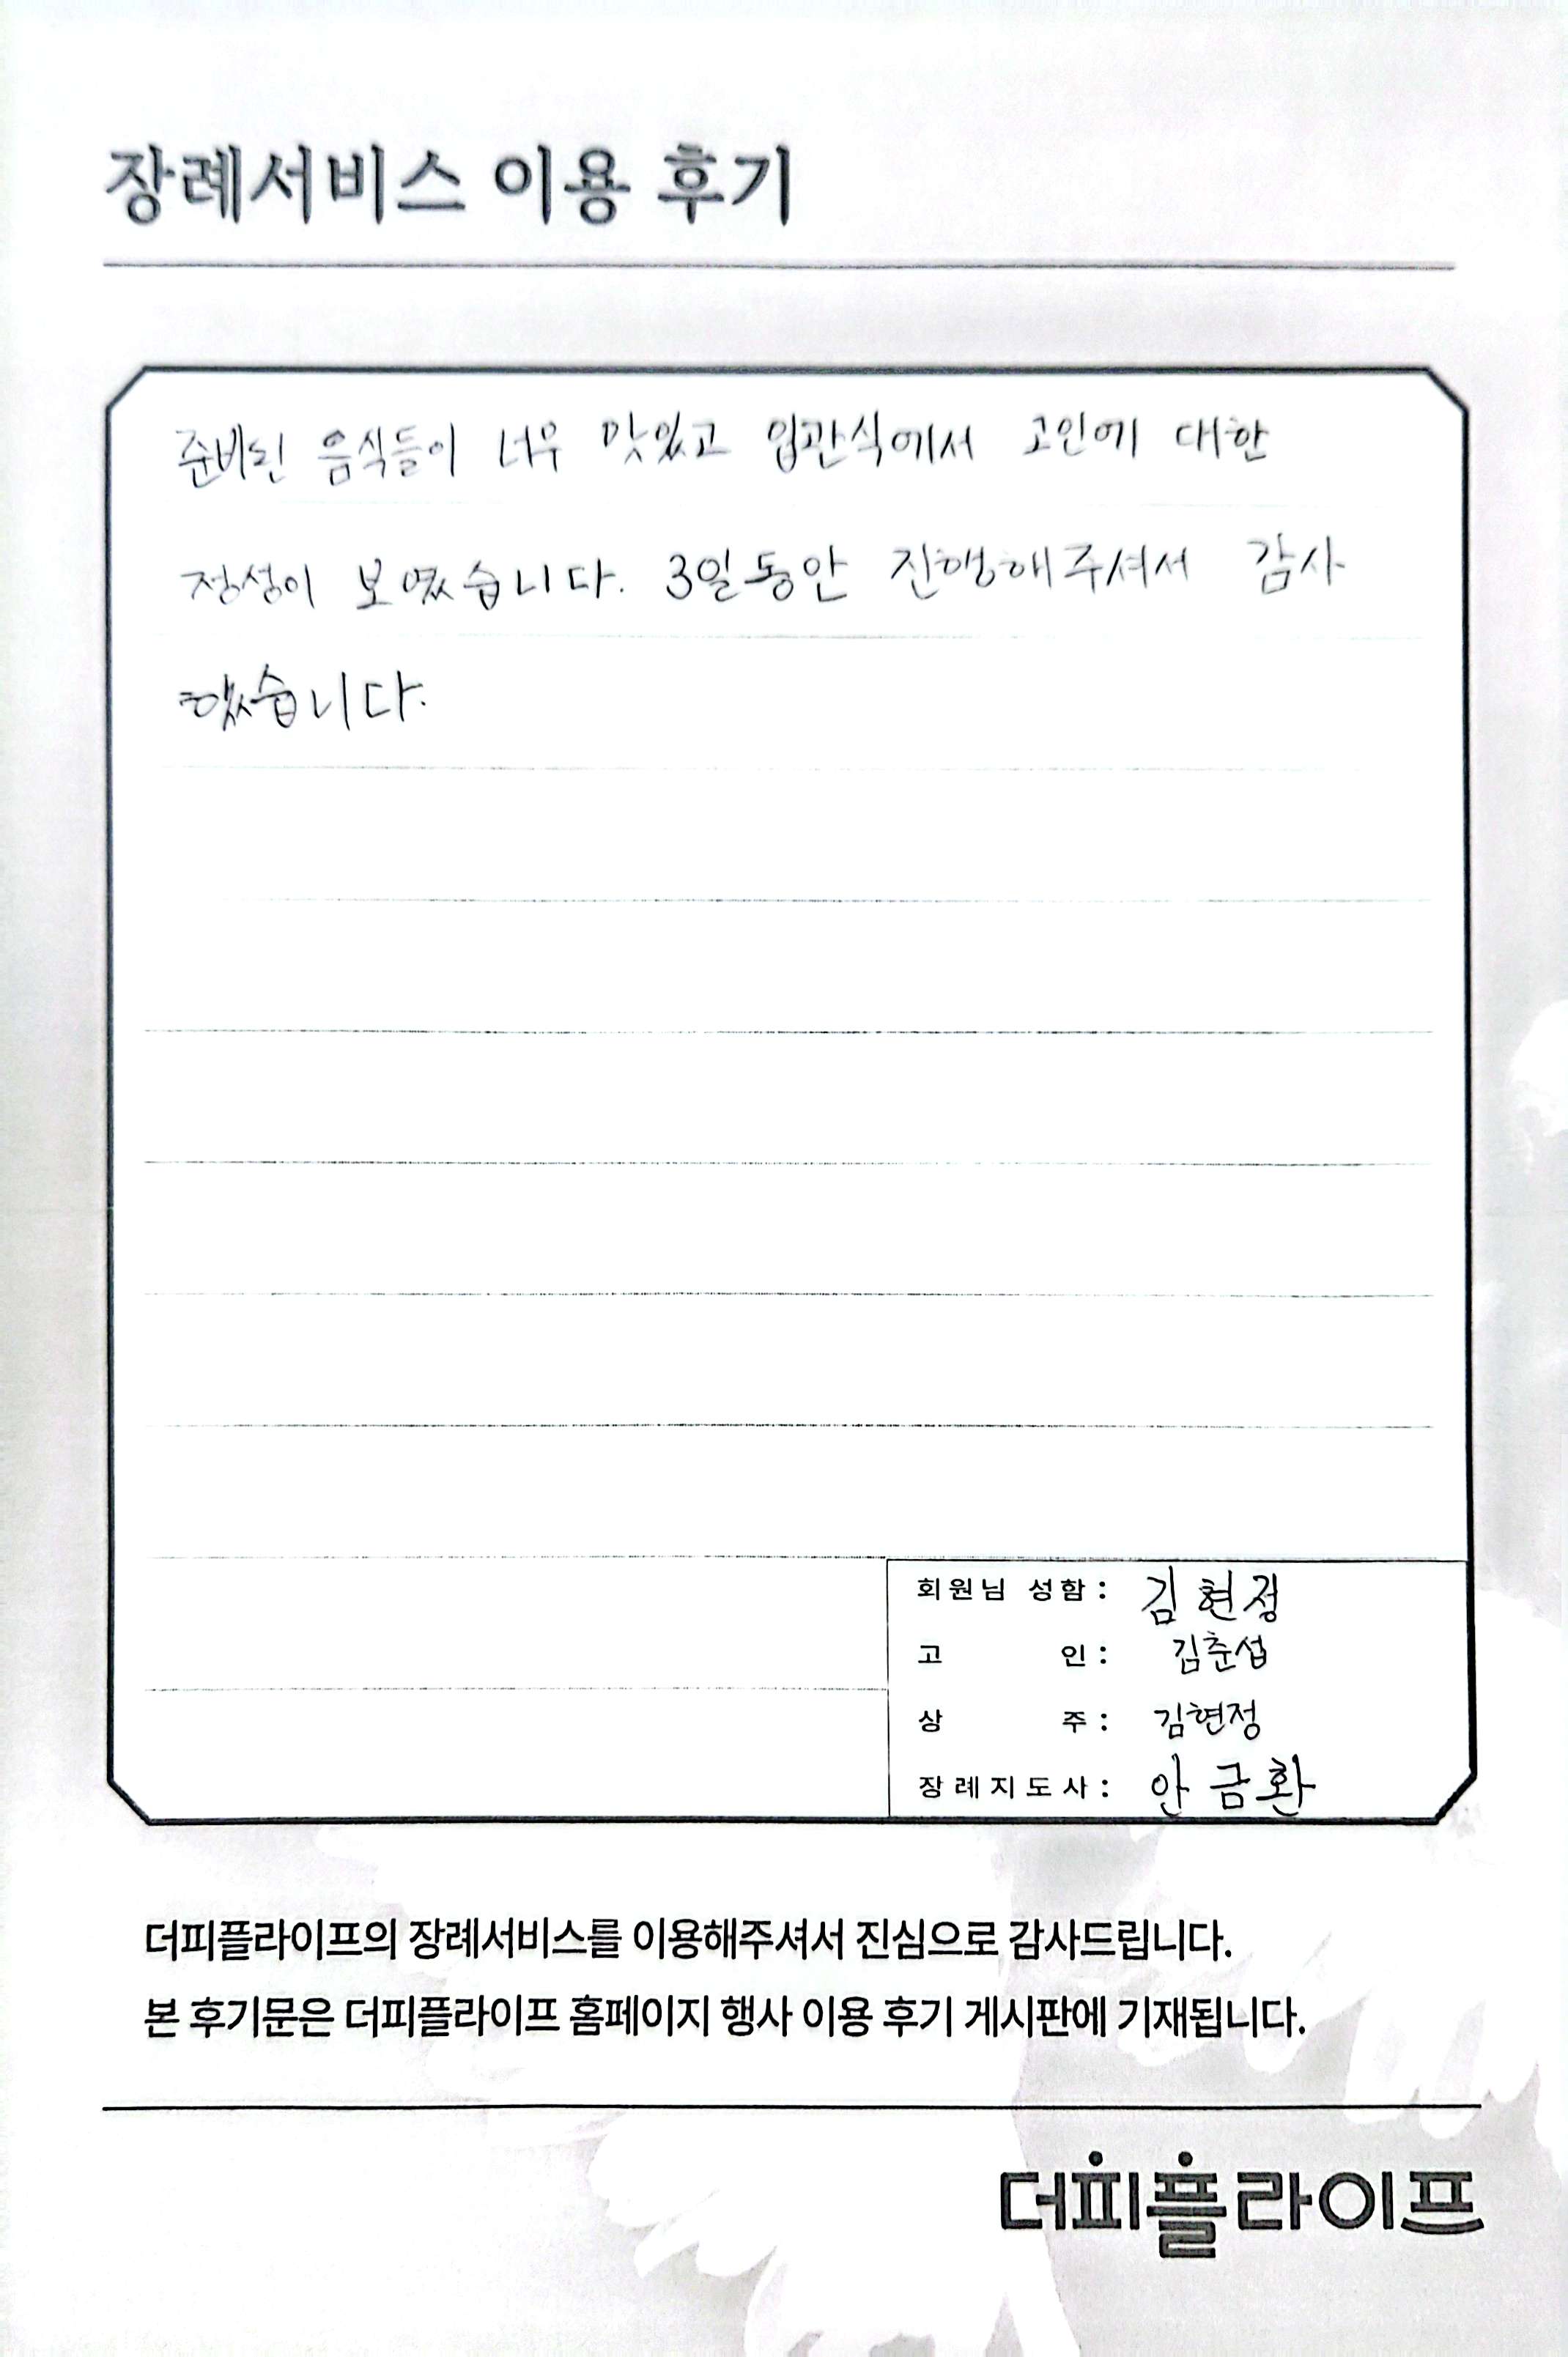 장례서비스 이용 후기
준비된 음식들이 너무 맛있고 입관식에서 고인에 대한
정성이 보였습니다. 3일동안 진행해주셔서 감사
했습니다.
회원님 성함 : 김현정
고 인 : 김춘섭
상 주 : 김현정
장례지도사 : 안금환
더피플라이프의 장례서비스를 이용해주셔서 진심으로 감사드립니다.
본 후기문은 더피플라이프 홈페이지 행사 이용 후기 게시판에 기재됩니다.
더피플라이프